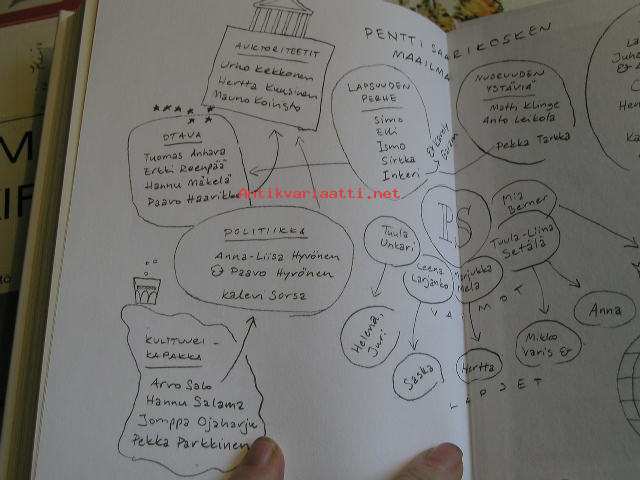 PENTTI SAARIKOSKEN
MAAILMA
AUKTORITEETIT
Urho Kekkonen
Hertta Kuusinen
Mauno Koivisto
OTAVA
Tuomas Anhava
Erkki Reenpää
Hannu Mäkelä
Paavo Haavikko
LAPSUUDEN
PERHE
Simo
Elli
Ismo
Sirkka
Inkeri
NUORUUDEN
YSTÄVIÄ
Matti Klinge
Anto Leikola
Pekka Tarkka
POLITIIKKA
Anna-Liisa Hyvönen
& Paavo Hyvönen
Kalevi Sorsa
KULTTUURI-
KAPAKKA
Arvo Salo
Hannu Salama
Jomppa Ojaharju
Pekka Parkkinen
Ps
Tuula
Unkari
Leena
Larjanko
Marjukka
Mela
Tuula-Liina
Setälä
Mia
Berner
VAIMOT
Helena,
Juri
Saska
Hertta
Mikko
Varis &
Anna
LAPSET
Antikvariaatti.net